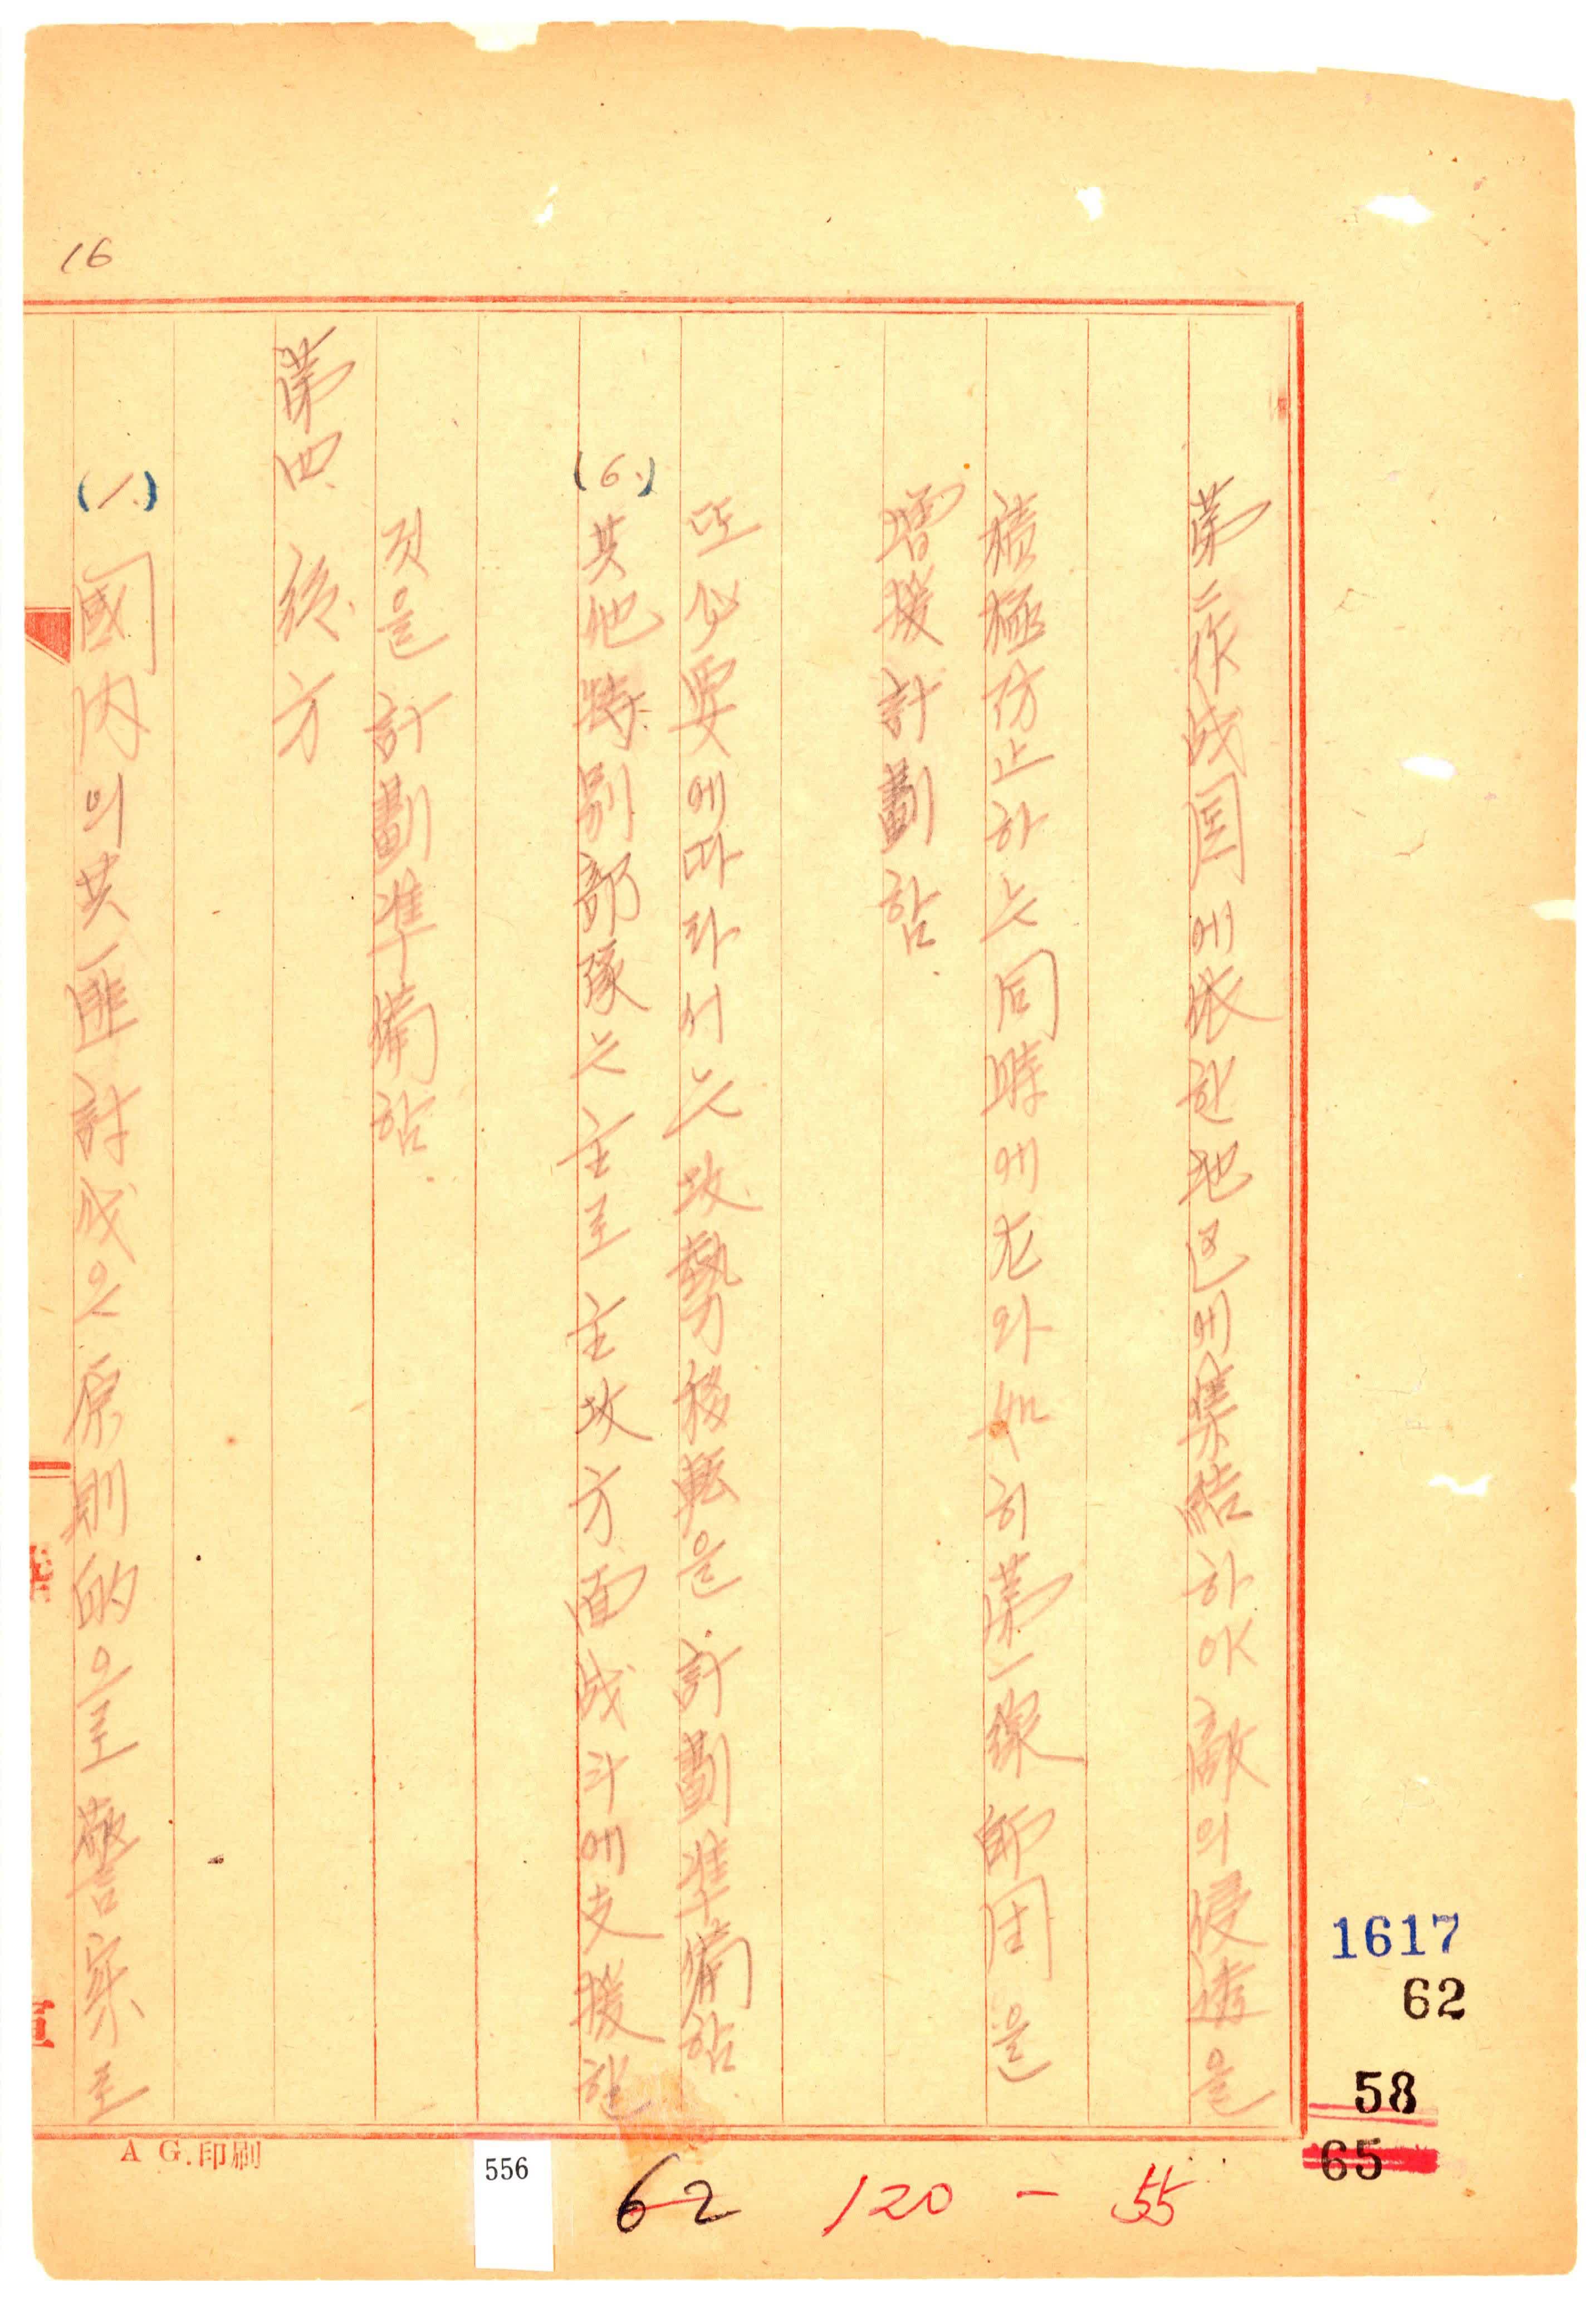 16
第二作战国에依한地区에集結하야敵의侵透을
積極防止하는同時에左와如히第一線師団을
增援計劃함.
또必要에따라서는攻勢移転을計劃準備함
(6.)
其他特別部隊는主로主攻方面战斗에支援할
것을計劃準備함.
第四. 後方
(1.)
國內의共匪討伐은原則的으로警察로
1617
62
58
65
A G.印刷
556
62 120-55